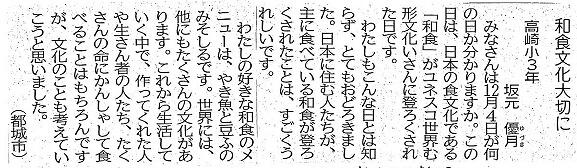 和食文化大切に
高崎小3年
坂元　優月
ゆづき
みなさんは12月4日が何
の日か分かりますか。この
日は、日本の食文化である
「和食」がユネスコ世界む
形文化いさんに登ろくされ
た日です。
わたしもこんな日とは知
らず、とてもおどろきまし
た。日本に住む人たちが、
主に食べている和食が登ろ
くされたことは、すごくう
れしいです。
わたしの好きな和食のメ
ニューは、やき魚と豆ふの
みそしるです。世界には、
他にもたくさんの文化があ
ります。これから生活して
いく中で、作ってくれた人
や生さん者の人たち、たく
さんの命にかんしゃして食
べることはもちろんです
が、文化のことも考えてい
こうと思いました。
（都城市）